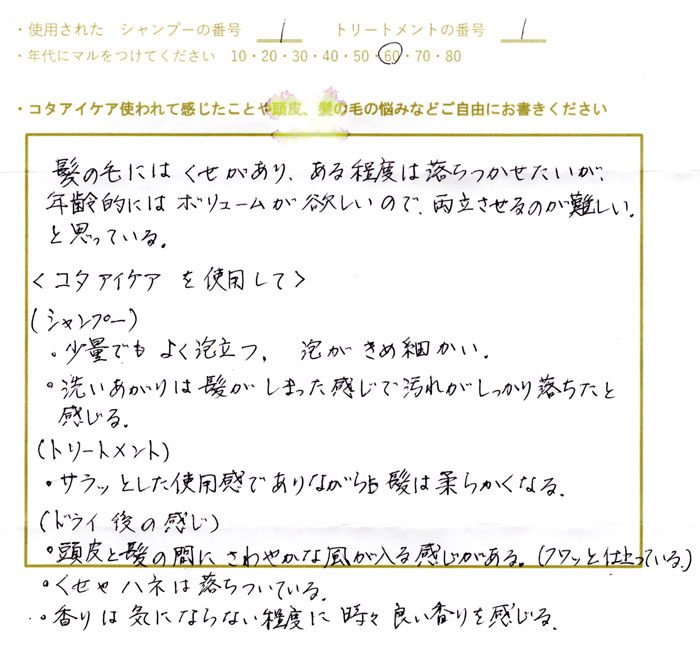 ・使用された シャンプーの番号 1 トリートメントの番号 1
・年代にマルをつけてください 10・20・30・40・50・60・70・80
・コタアイケア使われて感じたことや頭皮、髪の毛の悩みなどご自由にお書きください
髪の毛にはくせがあり、ある程度は落ちつかせたいが、
年齢的にはボリュームが欲しいので、両立させるのが難しい。
と思っている。
<コタアイケア を使用して>
(シャンプー)
・少量でもよく泡立つ、 泡がきめ細かい。
・洗いあがりは髪がしまった感じで汚れがしっかり落ちたと
感じる。
(トリートメント)
・サラッとした使用感でありながらも髪は柔らかくなる。
(ドライ後の感じ)
・頭皮と髪の間にさわやかな風が入る感じがある。(フワッと仕上っている。)
・くせやハネは落ちついている。
・香りは気にならない程度に時々良い香りを感じる。